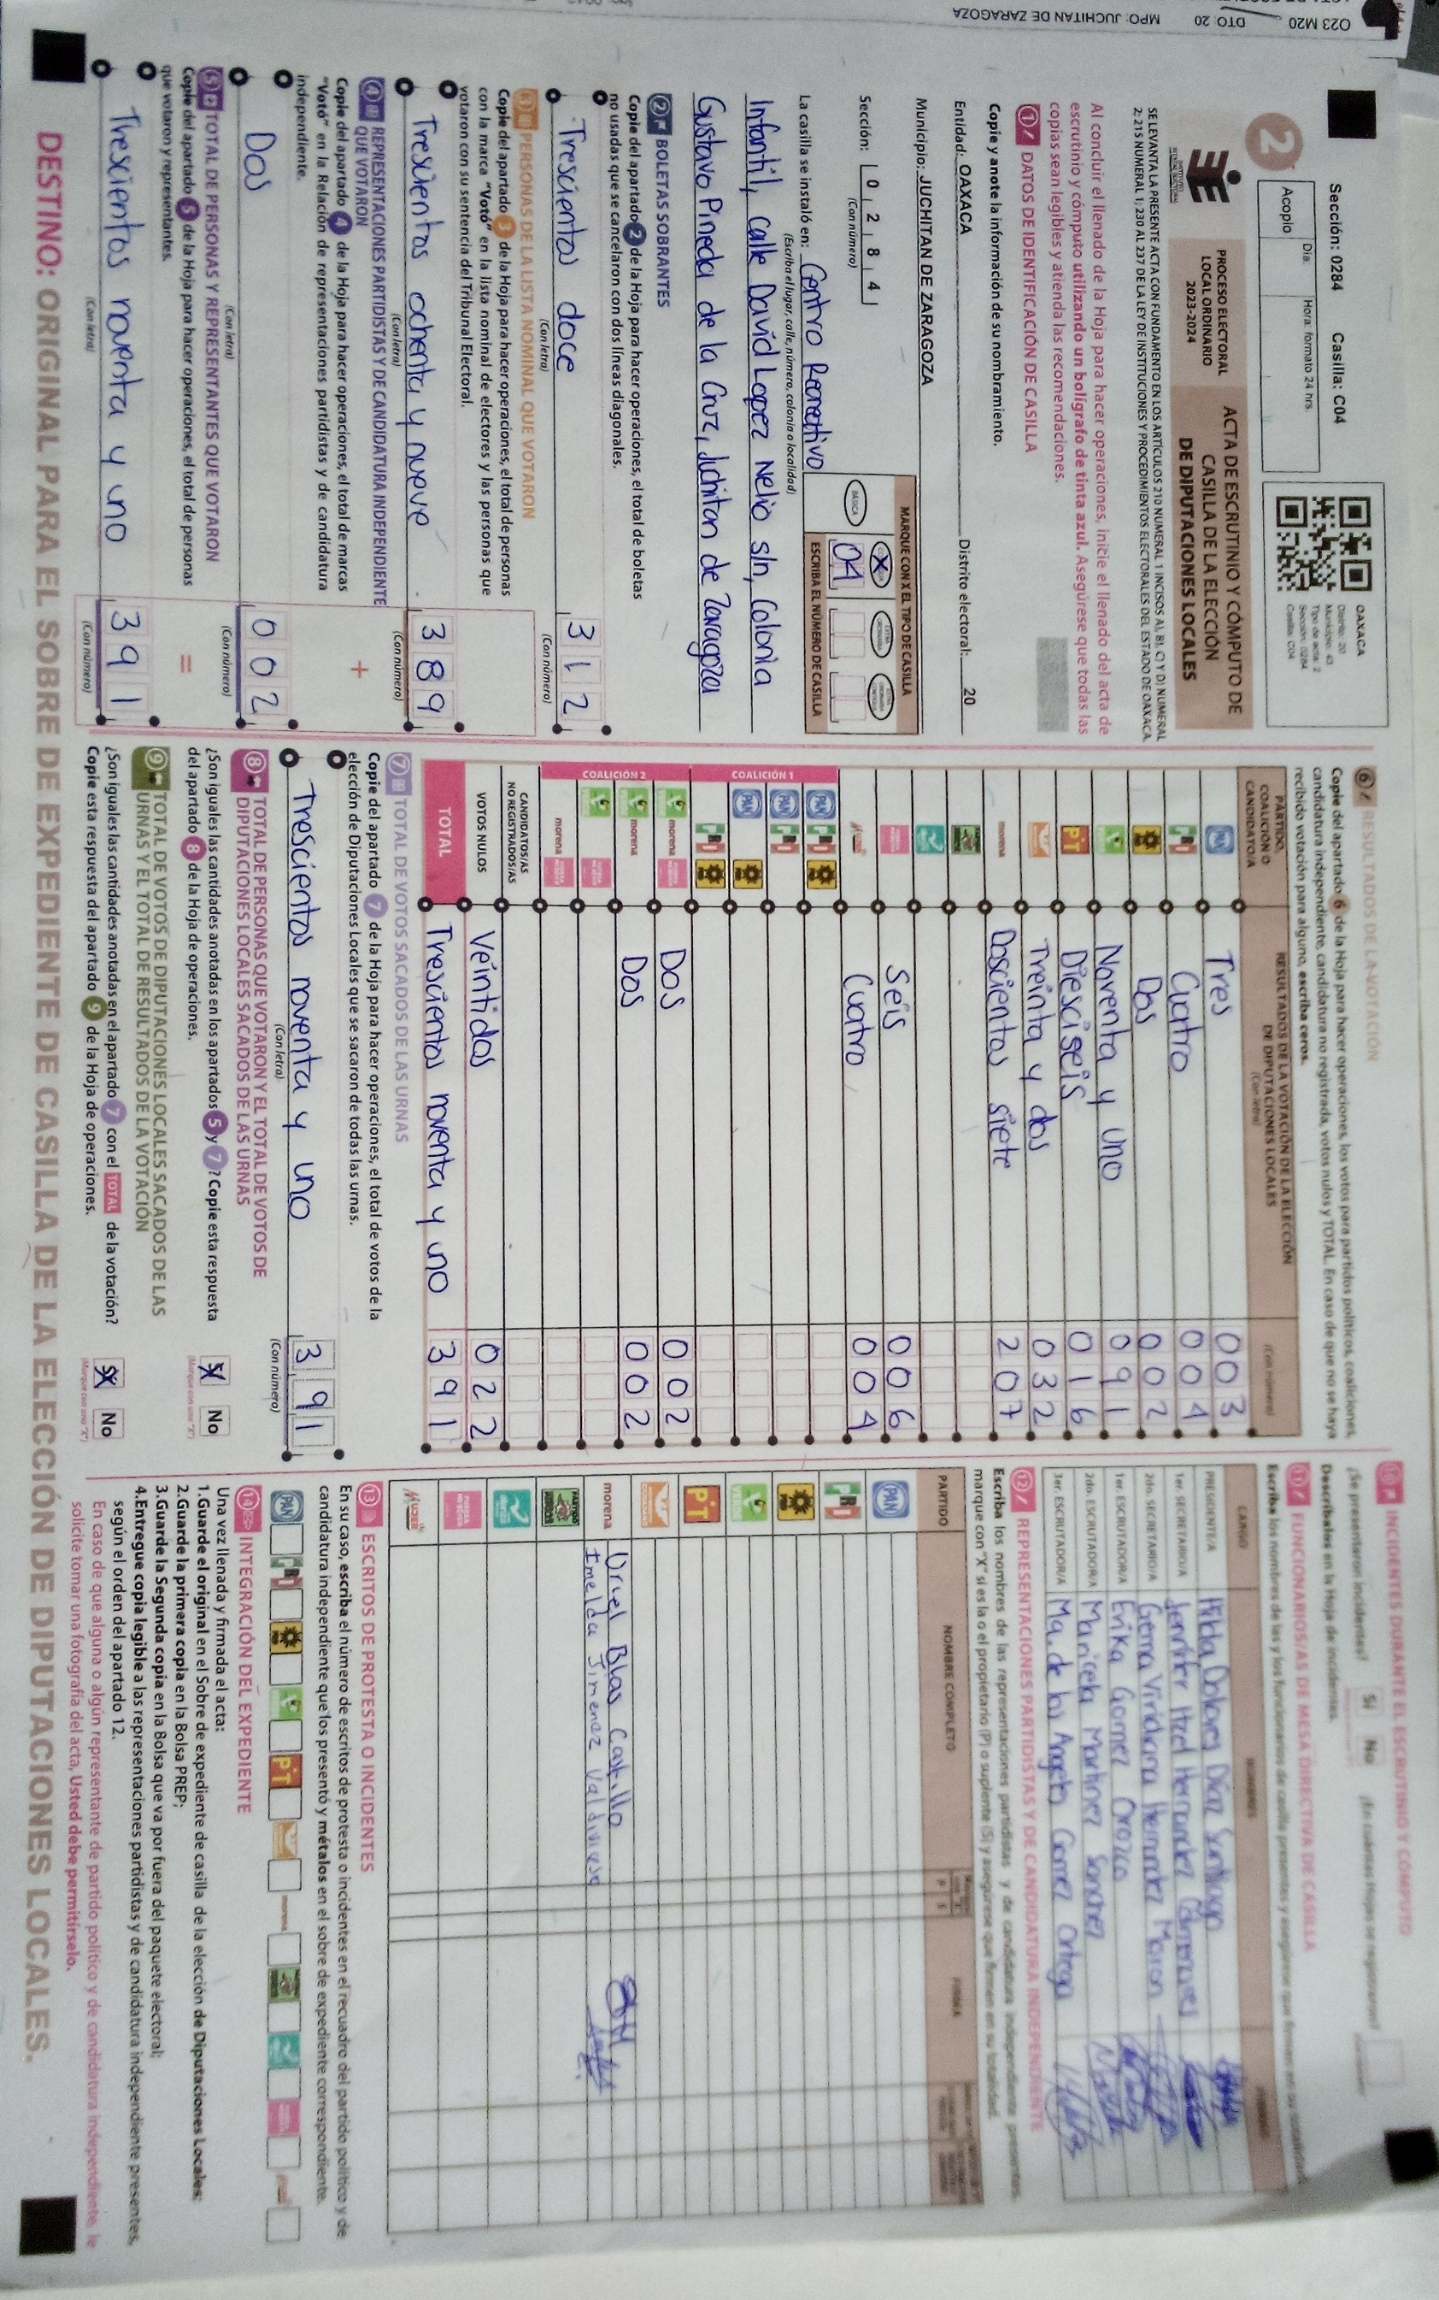 Q23 M20 DTO: 20 MPO: JUCHITAN DE ZARAGOZA
Sección: 0284 Casilla: C04
2
Día: Hora: formato 24 hrs.
Acopio
OAXACA
Distrito: 20
Municipio: 43
Tipo de acta: 2
Sección: 0284
Casilla: C04
PROCESO ELECTORAL LOCAL ORDINARIO 2023-2024
ACTA DE ESCRUTINIO Y CÓMPUTO DE CASILLA DE LA ELECCIÓN DE DIPUTACIONES LOCALES
SE LEVANTA LA PRESENTE ACTA CON FUNDAMENTO EN LOS ARTÍCULOS 210 NUMERAL 1 INCISOS A), B), C) Y D) NUMERAL
2; 215 NUMERAL 1; 230 AL 237 DE LA LEY DE INSTITUCIONES Y PROCEDIMIENTOS ELECTORALES DEL ESTADO DE OAXACA.
Al concluir el llenado de la Hoja para hacer operaciones, inicie el llenado del acta de
escrutinio y cómputo utilizando un bolígrafo de tinta azul. Asegúrese que todas las
copias sean legibles y atienda las recomendaciones.
1 DATOS DE IDENTIFICACIÓN DE CASILLA
Copie y anote la información de su nombramiento.
Entidad: OAXACA Distrito electoral: 20
Municipio: JUCHITAN DE ZARAGOZA
Sección: 0 2 8 4
(Con número)
MARQUE CON X EL TIPO DE CASILLA
BÁSICA X
04
ESCRIBA EL NÚMERO DE CASILLA
La casilla se instaló en: Centro Recreativo
(Escriba el lugar, calle, número, colonia o localidad)
Infantil, Calle David Lopez Nelio s/n, Colonia
Gustavo Pineda de la Cruz, Juchitan de Zaragoza
2 BOLETAS SOBRANTES
Copie del apartado 2 de la Hoja para hacer operaciones, el total de boletas
no usadas que se cancelaron con dos líneas diagonales.
Trescientos doce 312
(Con letra) (Con número)
3 PERSONAS DE LA LISTA NOMINAL QUE VOTARON
Copie del apartado 3 de la Hoja para hacer operaciones, el total de personas
con la marca "Votó" en la lista nominal de electores y las personas que
votaron con su sentencia del Tribunal Electoral.
Trescientos ochenta y nueve 389
(Con letra) (Con número)
4 REPRESENTACIONES PARTIDISTAS Y DE CANDIDATURA INDEPENDIENTE
QUE VOTARON
Copie del apartado 4 de la Hoja para hacer operaciones, el total de marcas
"Votó" en la Relación de representaciones partidistas y de candidatura
independiente.
+
Dos 002
(Con letra) (Con número)
5 TOTAL DE PERSONAS Y REPRESENTANTES QUE VOTARON
Copie del apartado 5 de la Hoja para hacer operaciones, el total de personas
que votaron y representantes.
=
Trescientos noventa y uno 391
(Con letra) (Con número)
6 RESULTADOS DE LA VOTACIÓN
Copie del apartado 6 de la Hoja para hacer operaciones, los votos para partidos políticos, coaliciones,
candidatura independiente, candidatura no registrada, votos nulos y TOTAL. En caso de que no se haya
recibido votación para alguno, escriba ceros.
PARTIDO, COALICIÓN O CANDIDATO/A
RESULTADOS DE LA VOTACIÓN DE LA ELECCIÓN DE DIPUTACIONES LOCALES
(Con letra) (Con número)
PAN Tres 003
PRI Cuatro 004
PRD Dos 002
VERDE Noventa y uno 091
PT Diesciseis 016
Treinta y dos 032
morena Doscientos siete 207
Seis 006
MUJER Cuatro 004
COALICIÓN 1
PAN PRI PRD
PAN PRI
PAN PRD
PRI PRD
COALICIÓN 2
VERDE morena Dos 002
VERDE morena Dos 002
VERDE
morena
CANDIDATOS/AS NO REGISTRADOS/AS
VOTOS NULOS Veintidos 022
TOTAL Trescientos noventa y uno 391
7 TOTAL DE VOTOS SACADOS DE LAS URNAS
Copie del apartado 7 de la Hoja para hacer operaciones, el total de votos de la
elección de Diputaciones Locales que se sacaron de todas las urnas.
Trescientos noventa y uno 391
(Con letra) (Con número)
8 TOTAL DE PERSONAS QUE VOTARON Y EL TOTAL DE VOTOS DE
DIPUTACIONES LOCALES SACADOS DE LAS URNAS
¿Son iguales las cantidades anotadas en los apartados 5 y 7? Copie esta respuesta
del apartado 8 de la Hoja de operaciones.
Sí No
9 TOTAL DE VOTOS DE DIPUTACIONES LOCALES SACADOS DE LAS
URNAS Y EL TOTAL DE RESULTADOS DE LA VOTACIÓN
¿Son iguales las cantidades anotadas en el apartado 7 con el TOTAL de la votación?
Copie esta respuesta del apartado 9 de la Hoja de operaciones.
Sí No
10 INCIDENTES DURANTE EL ESCRUTINIO Y CÓMPUTO
¿Se presentaron incidentes? Sí No ¿En cuántas Hojas se registraron?
Descríbalos en la Hoja de incidentes.
11 FUNCIONARIOS/AS DE MESA DIRECTIVA DE CASILLA
Escriba los nombres de las y los funcionarios de casilla presentes y asegúrese que firmen en su totalidad.
CARGO NOMBRES FIRMAS
PRESIDENTE/A Hilda Dolores Díaz Santiago
1er. SECRETARIO/A Jennifer Itzel Hernandez
2do. SECRETARIO/A Gema Viridiana Hernandez
1er. ESCRUTADOR/A Erika Gomez Orozco
2do. ESCRUTADOR/A Maricela Martinez Sanchez
3er. ESCRUTADOR/A Ma. de los Angeles Gomez Ortega
12 REPRESENTACIONES PARTIDISTAS Y DE CANDIDATURA INDEPENDIENTE
Escriba los nombres de las representaciones partidistas y de candidatura independiente presentes,
marque con "X" si es la o el propietario (P) o suplente (S) y asegúrese que firmen en su totalidad.
PARTIDO NOMBRE COMPLETO P S FIRMA
PAN
PRI
PRD
VERDE
PT
morena Uriel Blas Castillo
Imelda Jimenez Valdivieso
MUJER
13 ESCRITOS DE PROTESTA O INCIDENTES
En su caso, escriba el número de escritos de protesta o incidentes en el recuadro del partido político y de
candidatura independiente que los presentó y métalos en el sobre de expediente correspondiente.
PAN PRI PRD VERDE PT
14 INTEGRACIÓN DEL EXPEDIENTE
Una vez llenada y firmada el acta:
1.Guarde el original en el Sobre de expediente de casilla de la elección de Diputaciones Locales;
2.Guarde la primera copia en la Bolsa PREP;
3.Guarde la Segunda copia en la Bolsa que va por fuera del paquete electoral;
4.Entregue copia legible a las representaciones partidistas y de candidatura independiente presentes,
según el orden del apartado 12.
En caso de que alguna o algún representante de partido político y de candidatura independiente, le
solicite tomar una fotografía del acta, Usted debe permitírselo.
DESTINO: ORIGINAL PARA EL SOBRE DE EXPEDIENTE DE CASILLA DE LA ELECCIÓN DE DIPUTACIONES LOCALES.